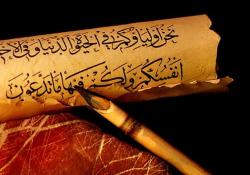 نَحْنُ اَوْلِيَاؤُكُمْ فِى الْحَيٰوةِ الدُّنْيَا وَفِى
اَنْفُسُكُمْ وَلَكُمْ فِيْهَا مَاتَدَّعُوْنَ